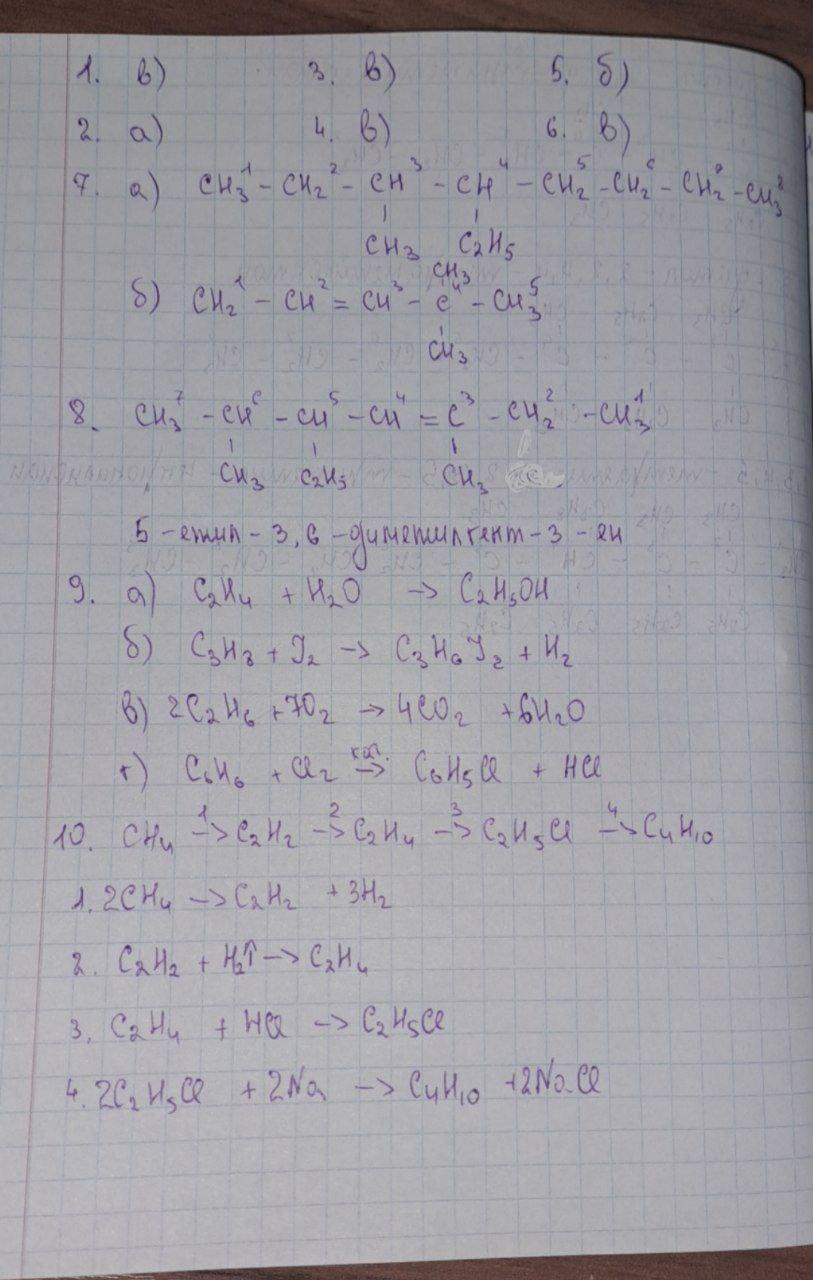 1. в) 3. в) 5. б)
2. а) 4. в) 6. в)
7. а) CH₃¹ - CH₂² - CH³ - CH⁴ - CH₂⁵ - CH₂⁶ - CH₂⁷ - CH₃⁸
CH₃ C₂H₅
CH₃
б) CH₂¹ - CH² = CH³ - C⁴ - CH₃⁵
CH₃
8. CH₃⁷ - CH⁶ - CH⁵ - CH⁴ = C³ - CH₂² - CH₃¹
CH₃ C₂H₅ CH₃
5 - етил - 3, 6 - диметилгепт - 3 - ен
9. а) C₂H₄ + H₂O → C₂H₅OH
б) C₃H₈ + I₂ → C₃H₆I₂ + H₂
в) 2C₂H₆ + 7O₂ → 4CO₂ + 6H₂O
г) C₆H₆ + Cl₂ кат. → C₆H₅Cl + HCl
10. CH₄ ¹→ C₂H₂ ²→ C₂H₄ ³→ C₂H₅Cl ⁴→ C₄H₁₀
1. 2CH₄ → C₂H₂ + 3H₂
2. C₂H₂ + H₂↑ → C₂H₄
3. C₂H₄ + HCl → C₂H₅Cl
4. 2C₂H₅Cl + 2Na → C₄H₁₀ + 2NaCl